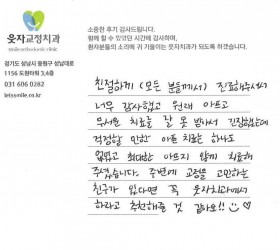 웃자교정치과
smile orthodontic clinic
경기도 성남시 중원구 성남대로
1156 도원타워 3,4층
031 606 0282
letssmile.co.kr
소중한 후기 감사드립니다.
함께 할 수 있었던 시간에 감사하며,
환자분들의 소리에 귀 기울이는 웃자치과가 되도록 하겠습니다.
친절하게 (모든 분들께서) 진료해주셔서
너무 감사했고 원래 아프고
무서운 치료를 잘 못 받아서 긴장했는데
걱정할 만한 아픈 치료는 하나도
없었고 최대한 아프지 않게 치료해
주셨습니다. 주변에 교정을 고민하는
친구가 있다면 꼭 웃자치과에서
하라고 추천해줄 것 같아요!!